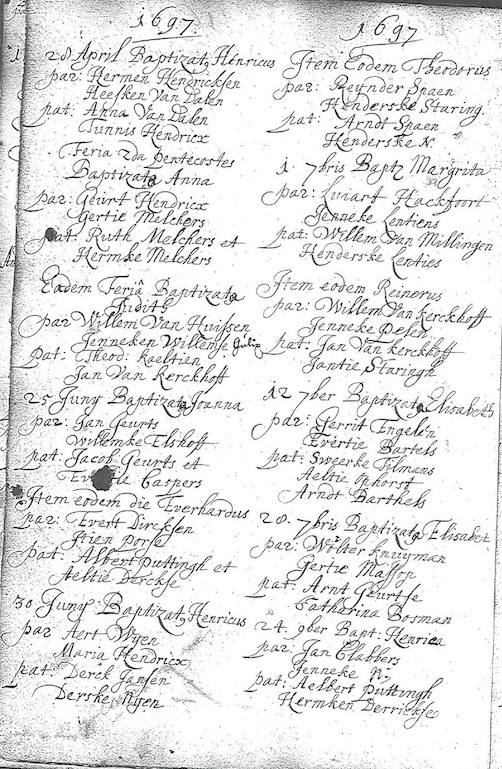 1697.
28 April Baptizatq Henricus
par: Hermen Hendricksen
Heefken Van Dalen
pat: Anna Van Dalen
Tunnis Hendricx
Feria 2da pentecostes
Baptizata Anna
par: Geurt Hendricx
Gertie Melchers
pat: Ruth Melchers et
Hermke Melchers
Eadem Feriâ Baptizata
Judith
par Willem Van Huissen
Jenneken Willemse
pat: Theod: Kaeltien
Jan Van Kerckhoff
25 Juny Baptizata Joanna
par: Jan Geurts
Willemke Elshoff
pat: Jacob Geurts et
Caspers
Jtem eodem die Everhardus
par: Evert Dircksen
Stien porse
pat: Albert puttingh et
Aeltie Derckse
30 Juny Baptizatq Henricus
par Aert Wijen
Maria Hendricx
pat: Derck Jansen
Derske Wijen
1697
Jtem Eodem Theodorus
par: Reynder Spaen
Henderske Staring.
pat: Arndt Spaen
Henderske N.
1. 7bris Bapt Margrita
par: Luiart Hackfoort
Jenneke Lentiens
pat: Willem Van Millingen
Henderske Lenties
Jtem eodem Reinerus
par: Willem Van Kerckhoff
Jenneke
pat: Jan Van Kerckhoff
Jantie Staringh
12 7ber Baptizata Elisabeth
par: Gerrit Engelen
Evertie Bartels
pat: Sweerke Tilmans
Aeltie Ophorst
Arndt Barthels
28. 7bris Baptizata Elisabet
par: Wolter Knuyman
Gertie Massop
pat: Arnt Geurtse
Catharina Bosman
24 9ber Bapt: Henrica
par: Jan Clabbers
Jenneke N:
pat: Aelbert Puttingh
Hermken Derrickse